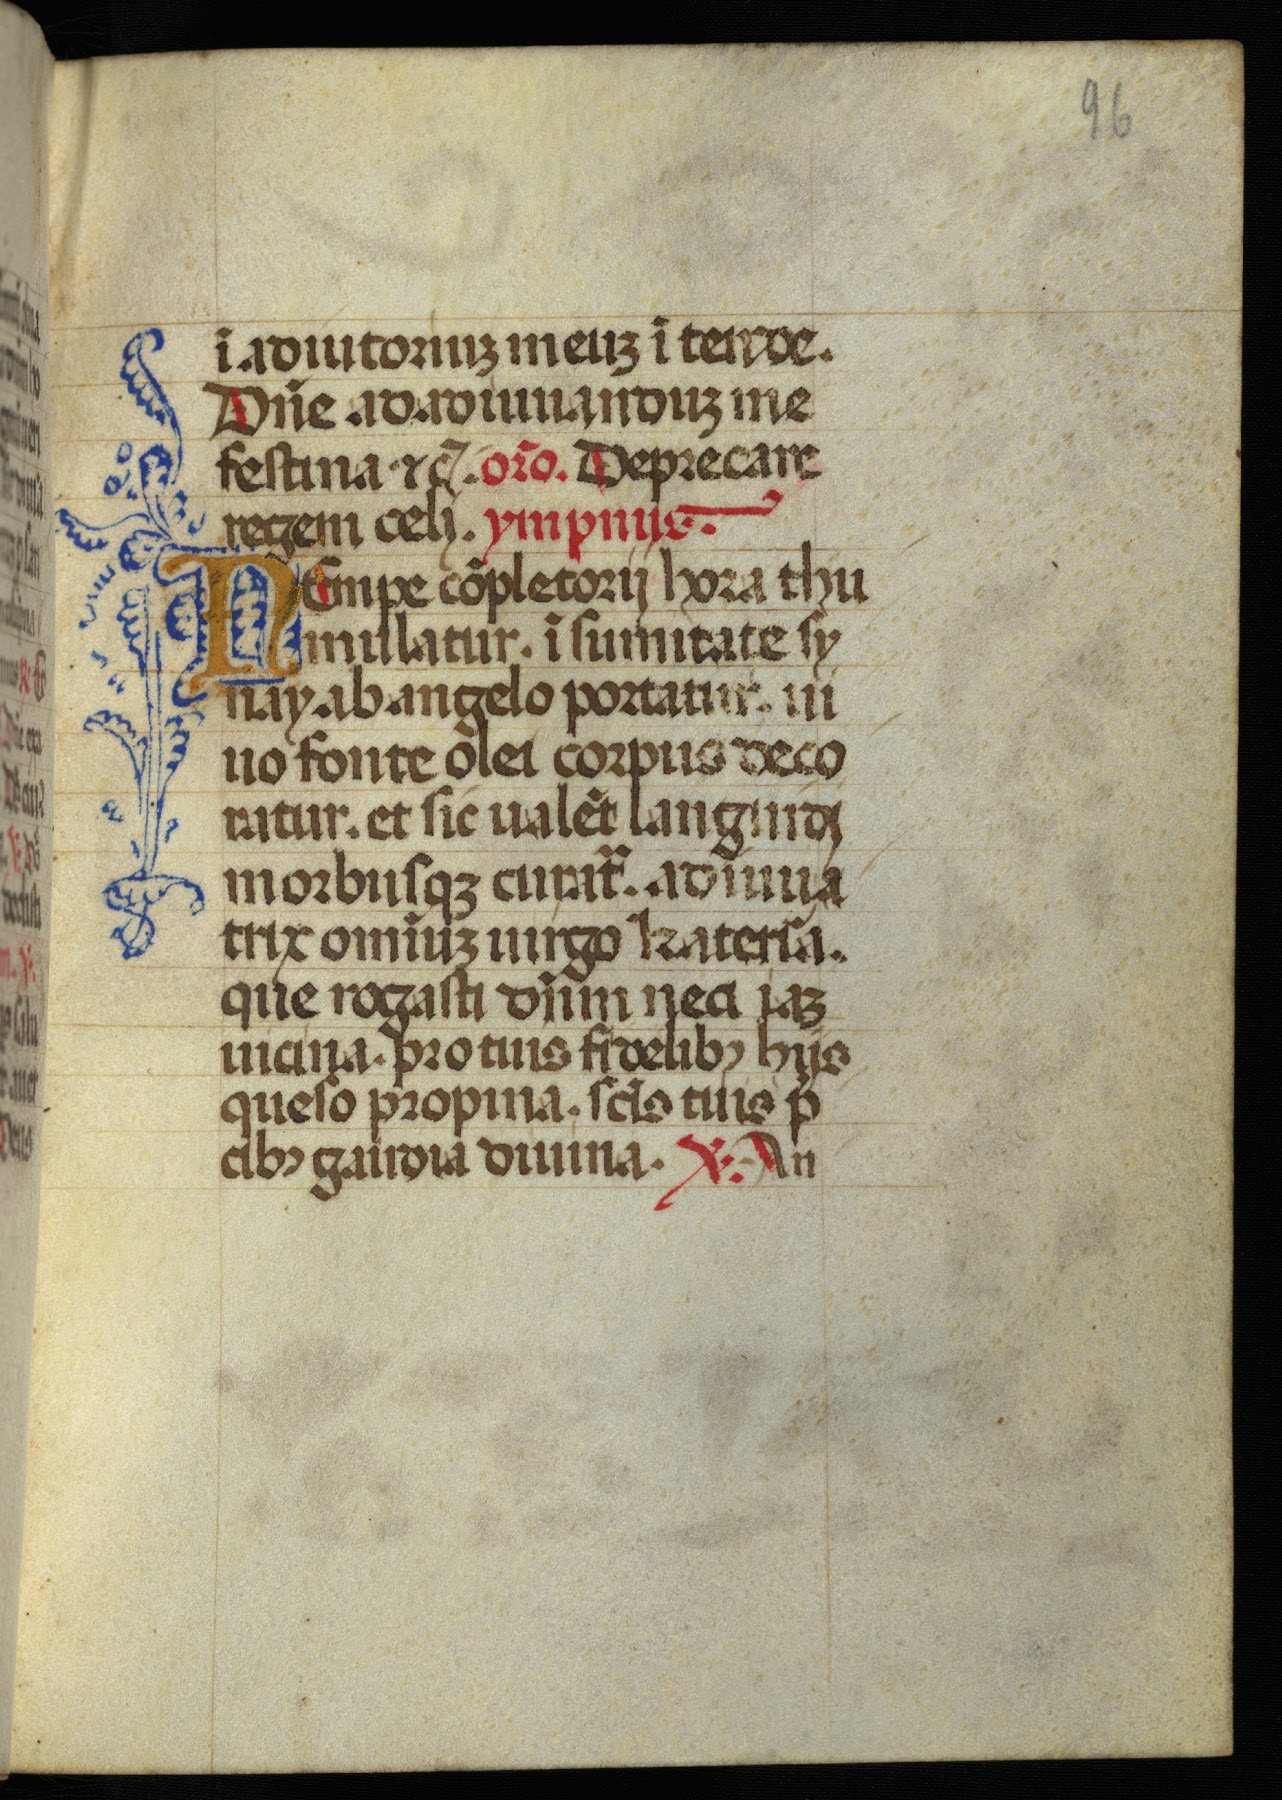 96
ī adiutoriuꝫ meuꝫ ītende.
Dn̄e ad adiuuanduꝫ me
festina ⁊c̄. or̄o. Deprecare
regem celi. ympnus.
Nempe cōpletorij hora thu
mulatur. ī sumitate sy
nay ab angelo portatur. ui
uo fonte olei corpus deco
ratur. et sic ualēt languidi
morbusqꝫ curat᷑. adiuua
trix omniuꝫ uirgo katerīa.
que rogasti dn̄m neci iaꝫ
uicina. pro tuis fidelibꝫ hijs
queso propina. scīs tuis p̄
cibꝫ gaudia diuina. V. An